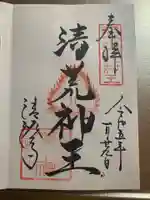 奉拝
令和五年
一月廿九日
清荒神王
清澄寺